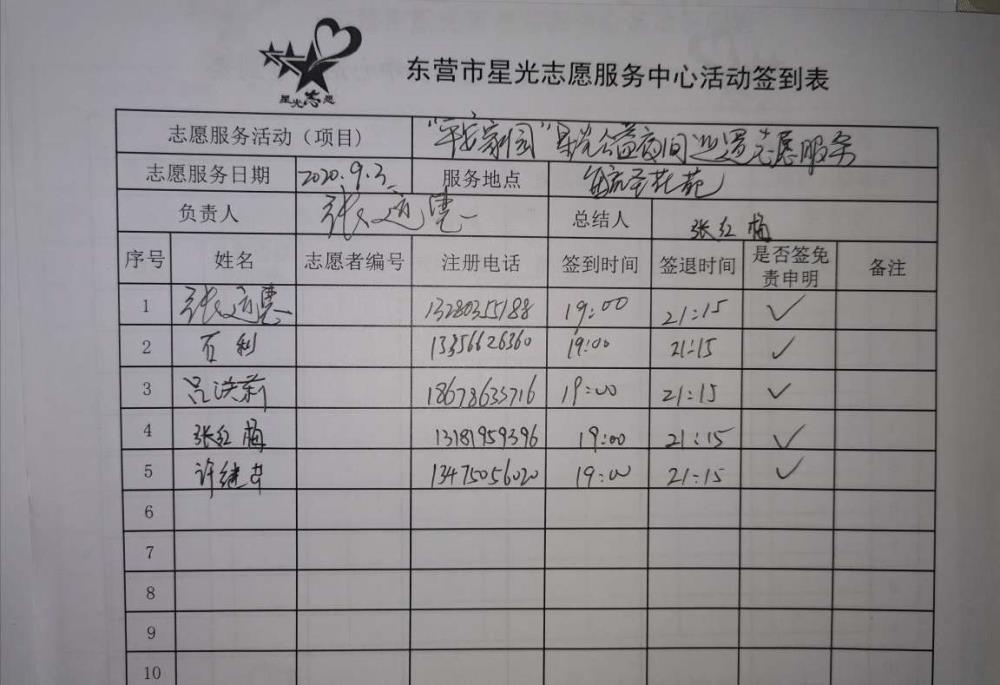 星光志愿
东营市星光志愿服务中心活动签到表
志愿服务活动（项目） "平安家园"星光公益夜间巡逻志愿服务
志愿服务日期 2020.9.3 服务地点
负责人 张 总结人 张红梅
序号 姓名 志愿者编号 注册电话 签到时间 签退时间 是否签免责申明 备注
1 张 13280355188 19:00 21:15 ✓
2 百利 13356626360 19:00 21:15 ✓
3 吕洪新 18678635716 19:00 21:15 ✓
4 张红梅 13181959396 19:00 21:15 ✓
5 许继 13475056020 19:00 21:15 ✓
6
7
8
9
10